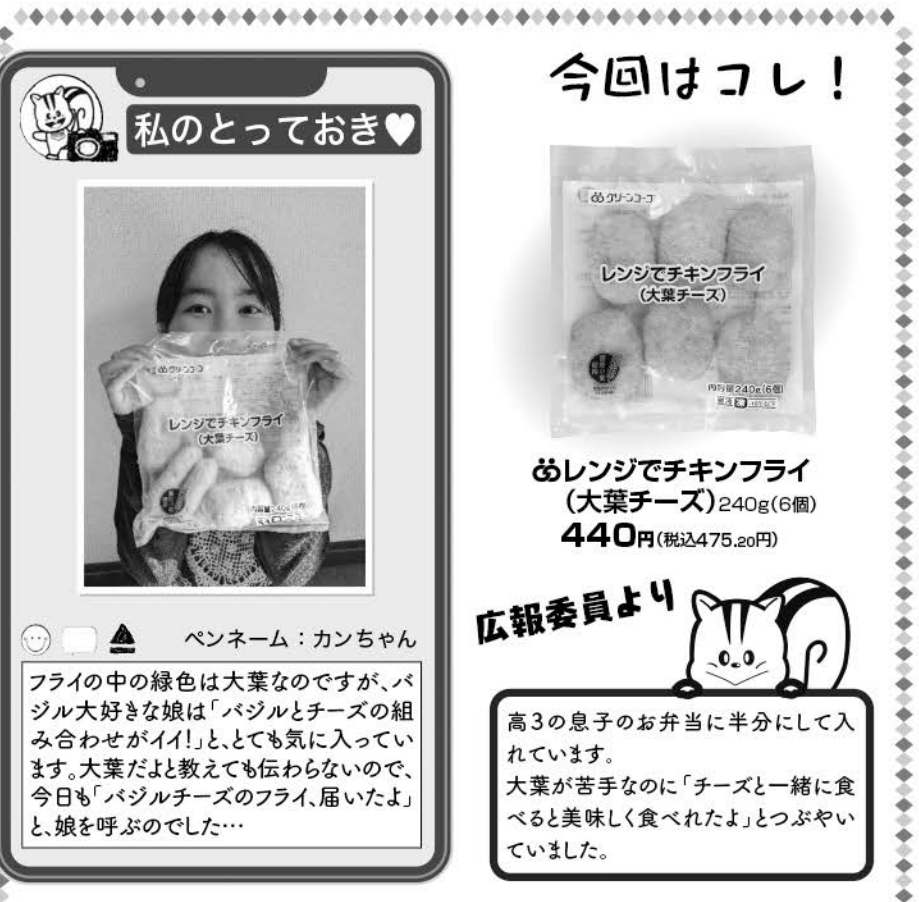 私のとっておき♥
グリーンコープ
レンジでチキンフライ
(大葉チーズ)
ペンネーム：カンちゃん
フライの中の緑色は大葉なのですが、バ
ジル大好きな娘は「バジルとチーズの組
み合わせがイイ!」と、とても気に入ってい
ます。大葉だよと教えても伝わらないので、
今日も「バジルチーズのフライ、届いたよ」
と、娘を呼ぶのでした…
今回はコレ！
グリーンコープ
レンジでチキンフライ
(大葉チーズ)
内容量240g(6個)
レンジでチキンフライ
(大葉チーズ)240g(6個)
440円(税込475.20円)
広報委員より
高3の息子のお弁当に半分にして入
れています。
大葉が苦手なのに「チーズと一緒に食
べると美味しく食べれたよ」とつぶやい
ていました。